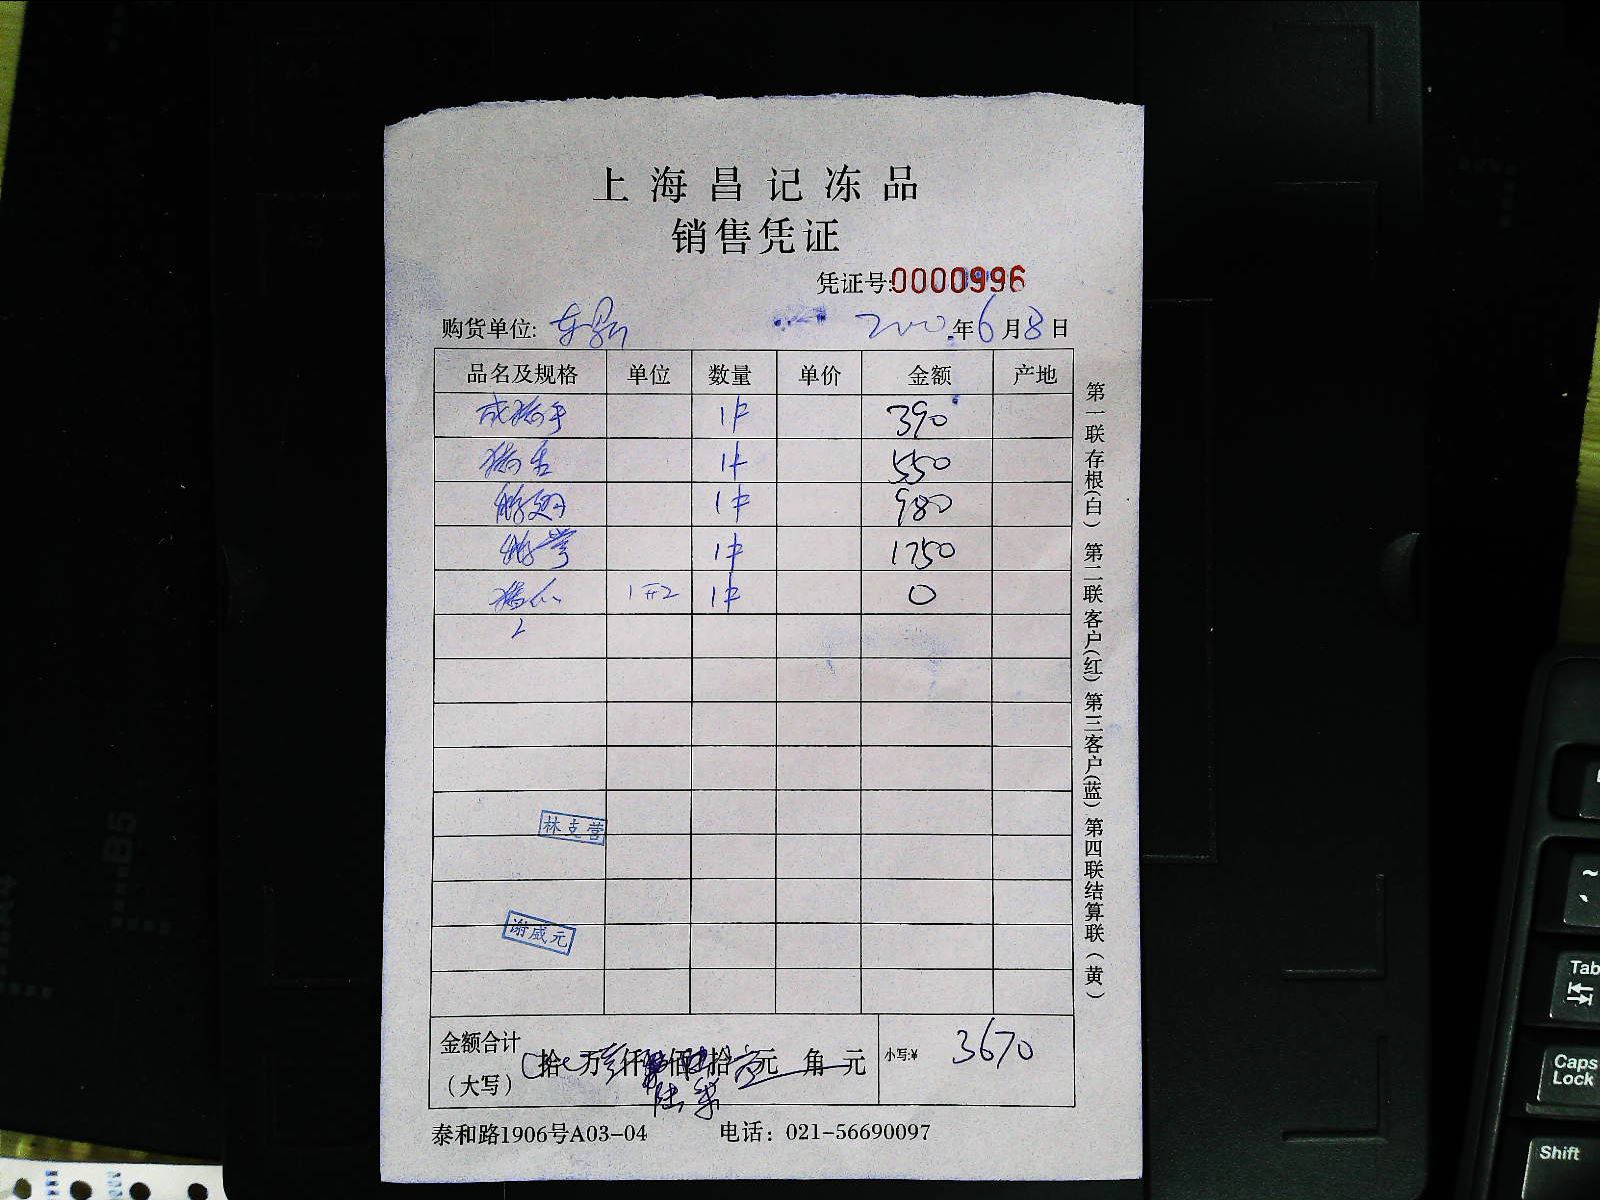 上海昌记冻品
销售凭证
凭证号:0000996
购货单位: 年6月8日
品名及规格 单位 数量 单价 金额 产地
1件 390
猪舌 1件 550
1件 980
1件 1750
1件 0
林克营
谢威元
金额合计(大写) 拾 万 仟 佰 拾 元 角 元 小写:¥ 3670
陆 柒
泰和路1906号A03-04 电话: 021-56690097
第一联存根(白) 第二联客户(红) 第三客户(蓝) 第四联结算联(黄)
B5
Tab
Caps Lock
Shift